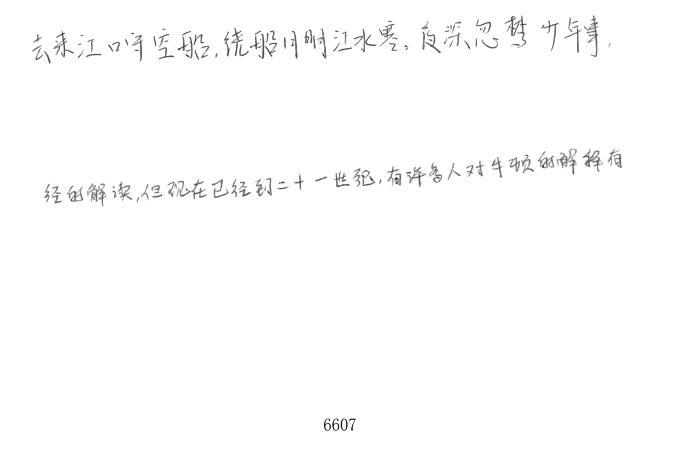 去来江口守空船,绕船月明江水寒。夜深忽梦少年事,
经的解读,但现在已经到二十一世纪,有许多人对牛顿的解释有
6607